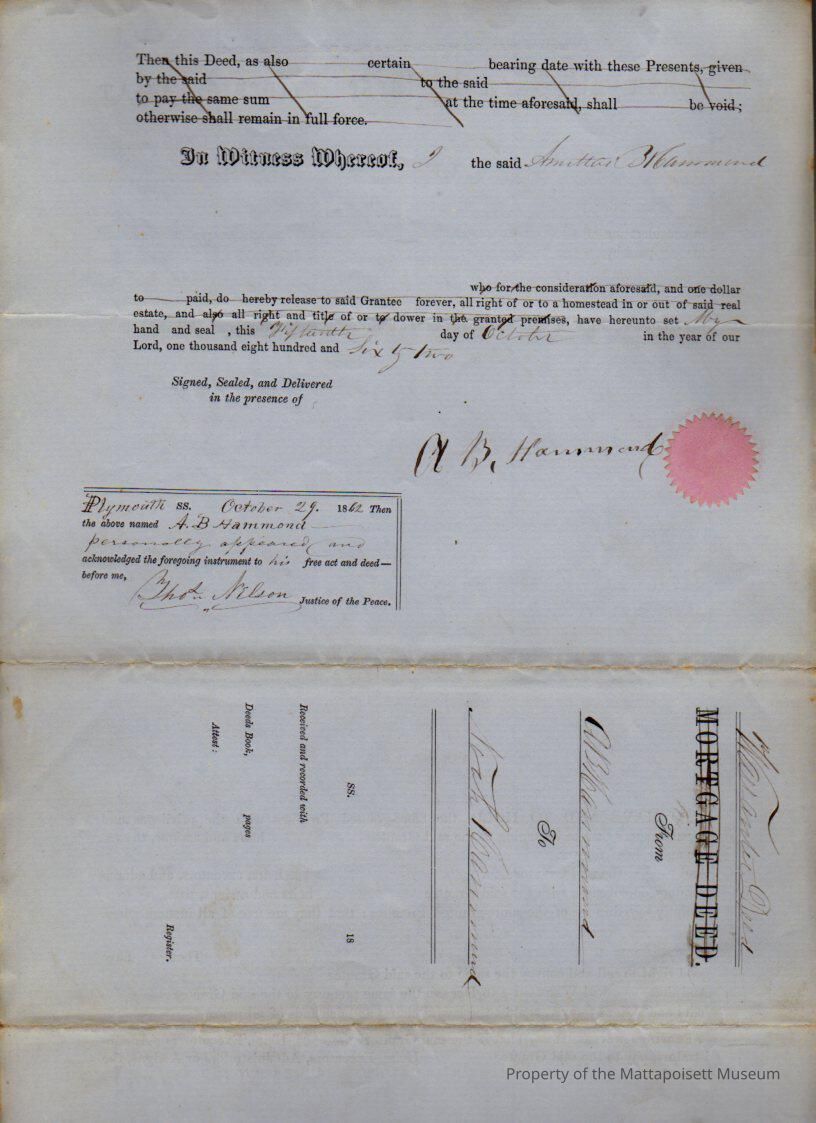 Then this Deed, as also certain bearing date with these Presents, given
by the said to the said
to pay the same sum at the time aforesaid, shall be void;
otherwise shall remain in full force.
In Witness Whereof, I the said Hammond
who for the consideration aforesaid, and one dollar
to paid, do hereby release to said Grantee forever, all right of or to a homestead in or out of said real
estate, and also all right and title of or to dower in the granted premises, have hereunto set My
hand and seal , this day of October in the year of our
Lord, one thousand eight hundred and Sixty two
Signed, Sealed, and Delivered
in the presence of
A B. Hammond
Plymouth SS. October 29. 1862 Then
the above named A. B Hammond
personally appeared and
acknowledged the foregoing instrument to his free act and deed—
before me,
Thos. Nelson Justice of the Peace.
Warrantee Deed
MORTGAGE DEED.
From
A B Hammond
To
Noah Hammond
SS. 18
Received and recorded with
Deeds Book, pages
Attest:
Register.
Property of the Mattapoisett Museum